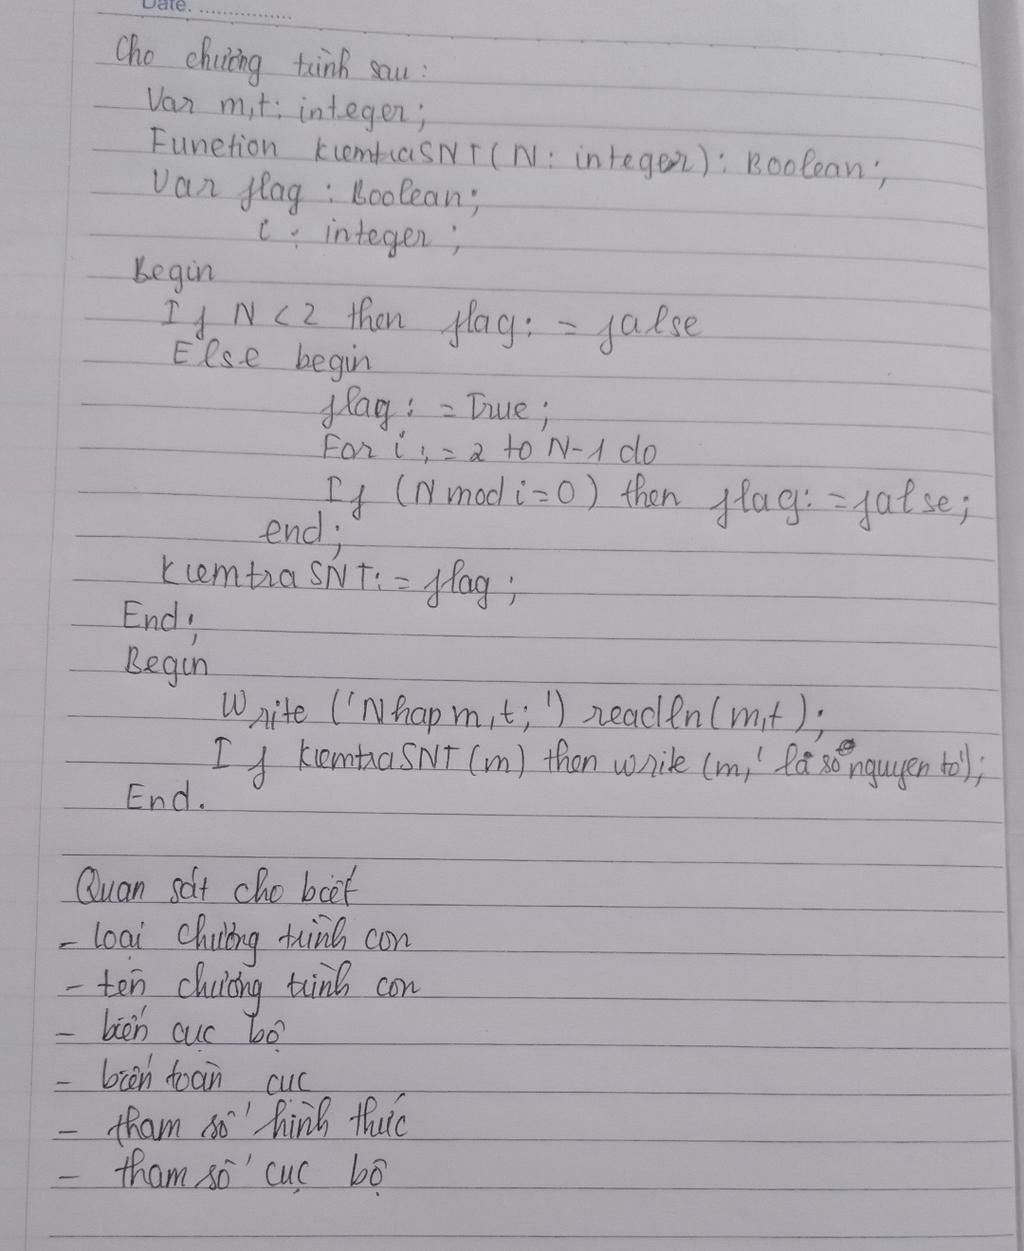 Date. ................
Cho chương trình sau:
Var m,t: integer;
Function kiemtraSNT(N: integer): Boolean;
Var flag : Boolean;
i : integer;
Begin
If N < 2 then flag: = false
Else begin
flag: = True;
For i := 2 to N-1 do
If (N mod i=0) then flag: =false;
end;
kiemtraSNT: = flag;
End;
Begin
Write ('Nhap m,t;') readln(m,t);
If kiemtraSNT(m) then write (m,' là số nguyen tố');
End.
Quan sát cho biết
- loại chương trình con
- tên chương trình con
- biến cục bộ
- biến toàn cục
- tham số hình thức
- tham số cục bộ